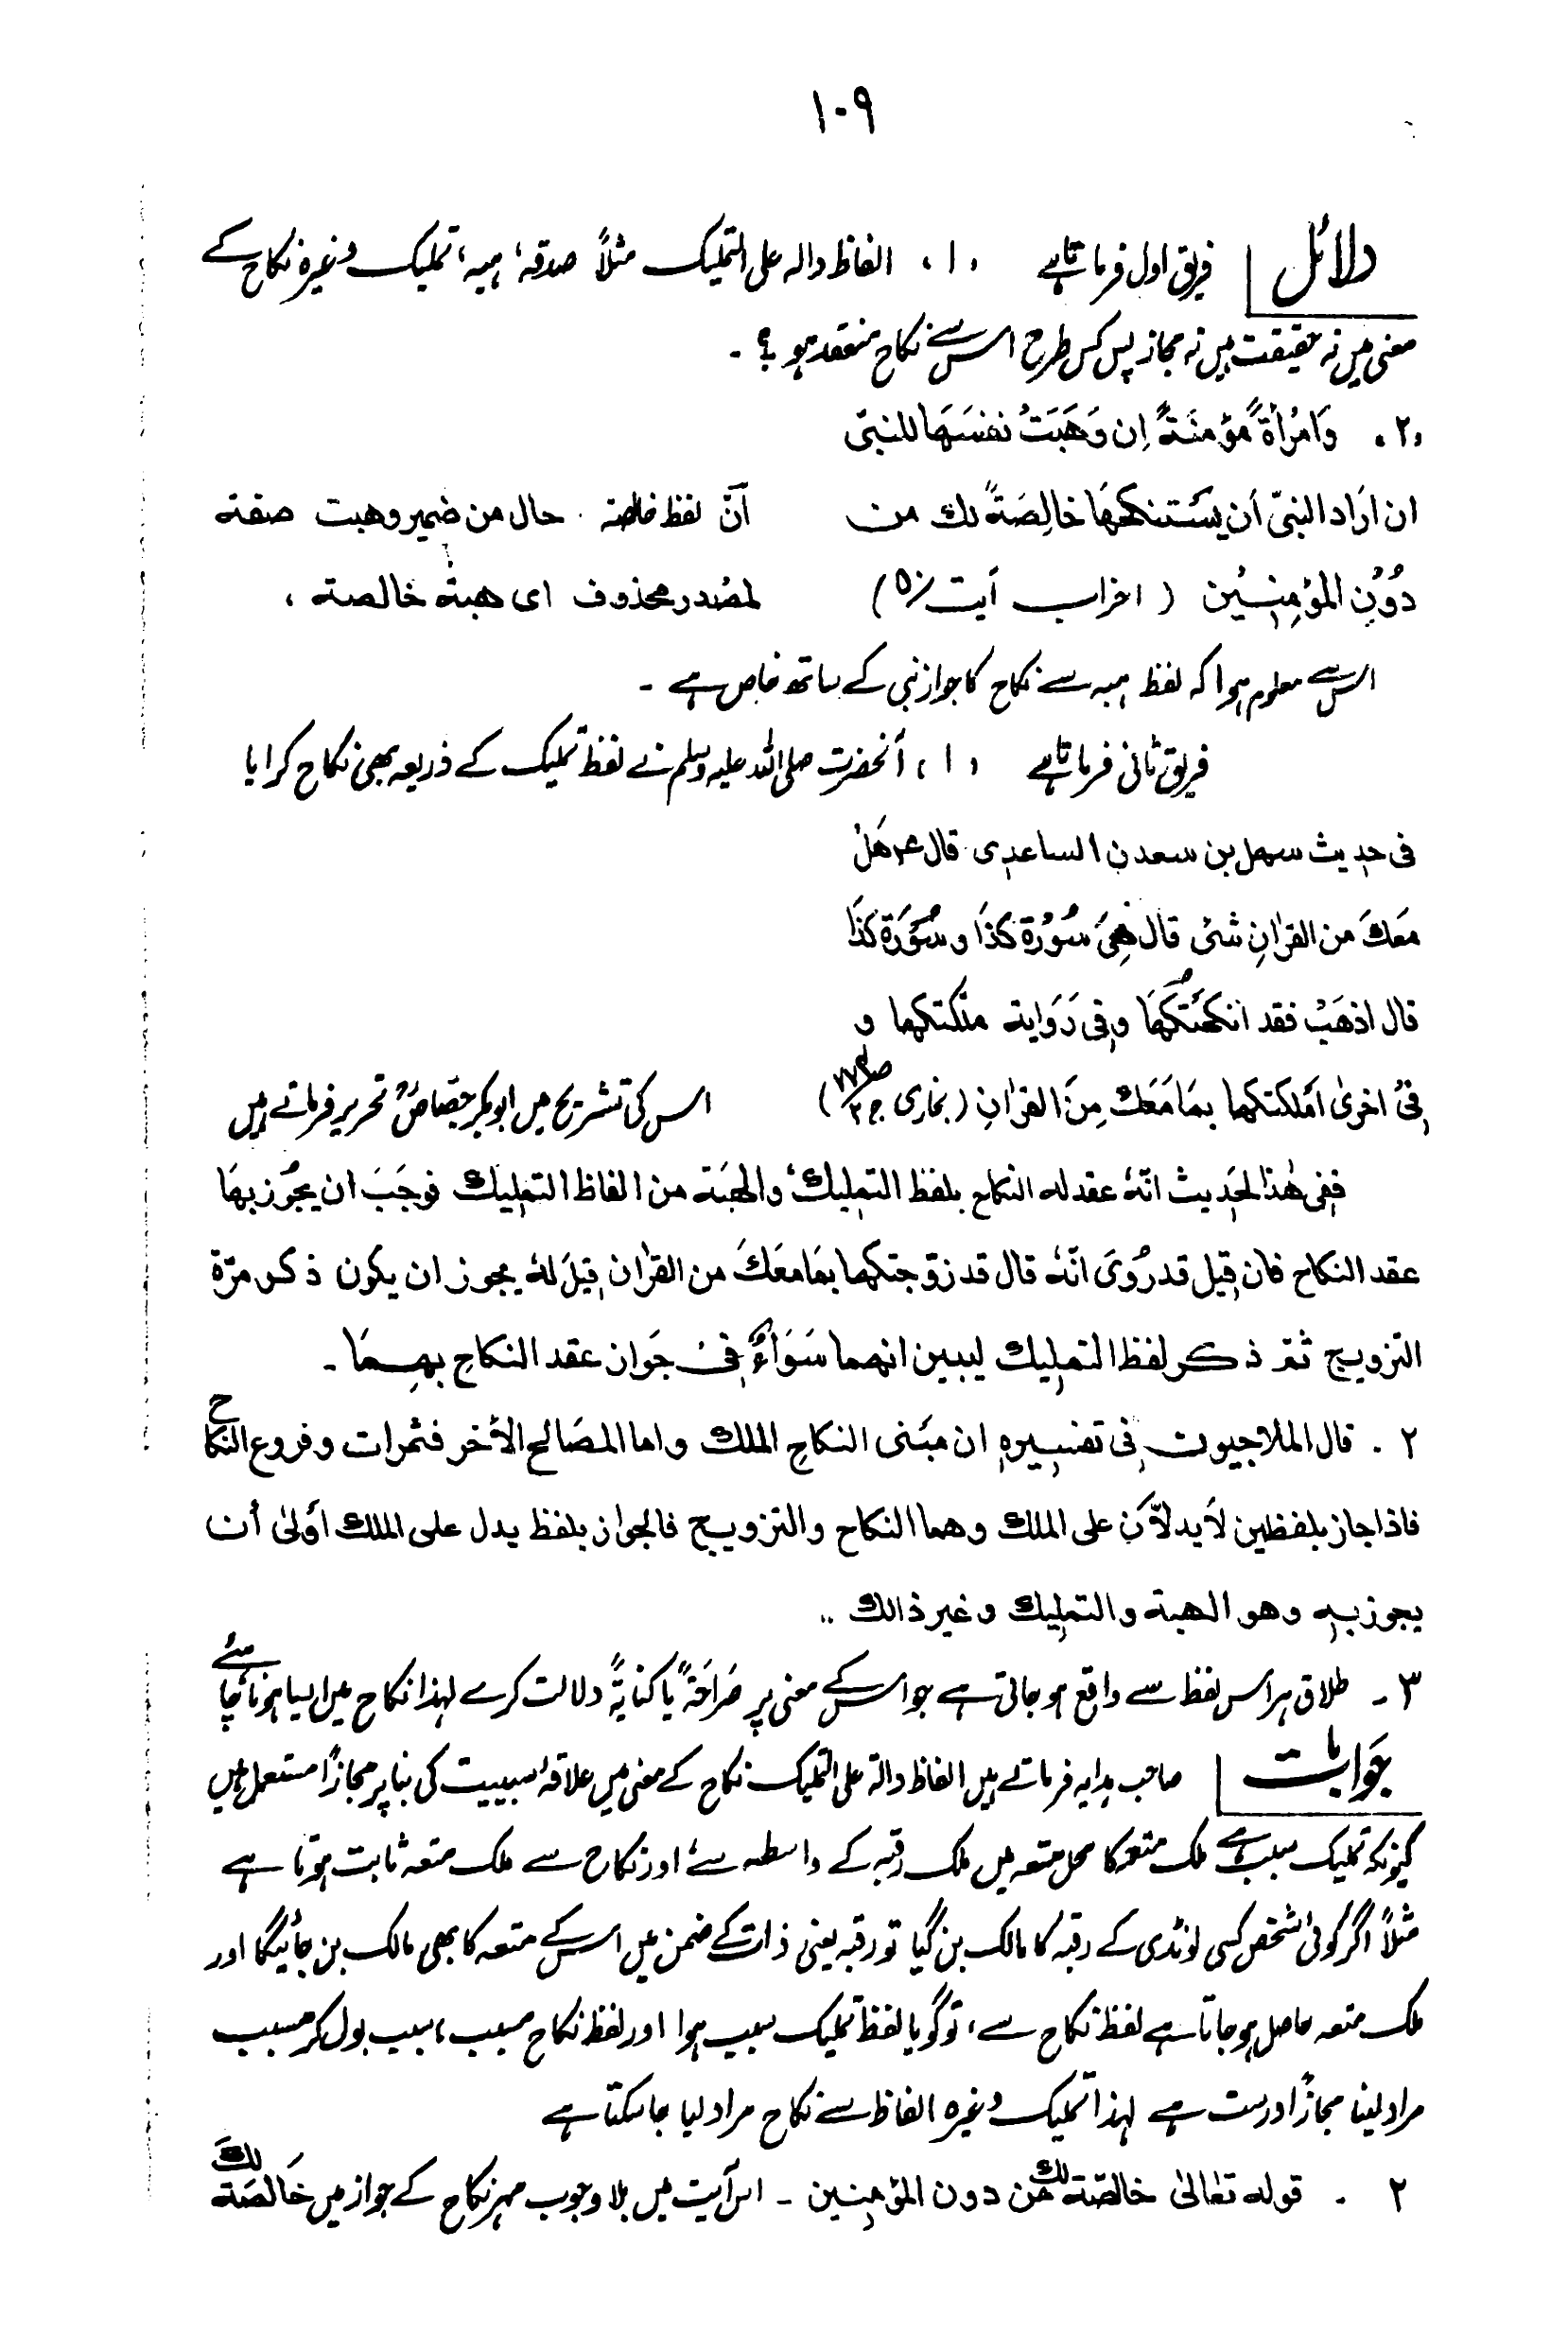 ۱۰۹
دلائل | فریق اول فرماتا ہے ‹۱› الفاظ دالہ علی التملیک مثلاً صدقہ، ہبہ، تملیک وغیرہ نکاح کے
معنی میں نہ حقیقت ہیں نہ مجاز پس کس طرح اس سے نکاح منعقد ہو؟ ۔
‹۲› وَامْرَأۃً مؤمنَۃً اِن وَھَبَتْ نفسَھَا للنبیّ
ان ارَاد النبیّ اَن یسْتنکحھَا خالِصَۃً لک من
دُوْنِ المؤمِنِیْن ( احزاب آیت/۵۰ )
اَنّ لفظ خالصۃ حال من ضمیر وھبت صفۃ
لمصْدر محذوف ای ھبۃ خالصۃ ،
اس سے معلوم ہوا کہ لفظ ہبہ سے نکاح کا جواز نبی کے ساتھ خاص ہے ۔
فریق ثانی فرماتا ہے ‹۱› آنحضرت صلی اللہ علیہ وسلم نے لفظ تملیک کے ذریعہ بھی نکاح کرایا
فی حدیث سھل بن سعدن الساعدی قال عم ھَلْ
مَعَکَ من القرٰانِ شئ قال ھِیَ سُوْرَۃ کذَا و سُوْرَۃ کذَا
قال اذھَبْ فقد انکحْتُکَھَا وفی رَوَایۃ ملّکتکھا و
فیْ اخریٰ اَملکتکھا بمَا مَعَک مِنَ القرٰانِ (بخاری ج۲ ص۷۷۴) اس کی تشریح میں ابوبکر جصّاصؒ تحریر فرماتے ہیں
ففی ھٰذا الحَدیث انّہٗ عقد لہ النکاح بلفظ التملیک، والھبَۃ من الفاظ التملیک فوجَبَ ان یجُوز بھَا
عقد النکاح فان قِیل قد رُوِیَ انّہٗ قال قد زوّجتکھا بمَا معَکَ من القرٰان قِیلَ لہٗ یجوز ان یکون ذکر مرّۃ
التزویج ثم ذکر لفظ التملیک لیبین انھما سَوَاءٌ فی جَواز عقد النکاح بھِمَا ۔
۲ ۔ قال الملاجیون فی تفسیرہٖ ان مبْنی النکاح الملک واما المصَالح الاُخر فثمرات وفروع النکاح
فاذا جاز بلفظین لَا یدلّاَن علی الملک وھما النکاح والتزویج فالجواز بلفظ یدل علی الملک اَولیٰ أن
یجوز بہٖ وھو الھبۃ والتملیک وغیر ذالک ..
۳ ۔ طلاق ہر اس لفظ سے واقع ہو جاتی ہے جو اس کے معنی پر صَراحَۃً یا کنایۃً دلالت کرے لہذا نکاح میں ایسا ہونا چاہئے
جَوابات | صاحب ہدایہ فرماتے ہیں الفاظ دالۃ علی التملیک نکاح کے معنی میں علاقۂ سببیت کی بنا پر مجازًا مستعمل ہیں
کیونکہ تملیک سبب ہے ملک متعہ کا محل متعہ میں ملک رقبہ کے واسطہ سے، اور نکاح سے ملک متعہ ثابت ہوتا ہے
مثلاً اگر کوئی شخص کسی لونڈی کے رقبہ کا مالک بن گیا تو رقبہ یعنی ذات کے ضمن میں اس کے متعہ کا بھی مالک بن جائیگا اور
ملک متعہ حاصل ہو جاتا ہے لفظ نکاح سے، تو گویا لفظ تملیک سبب ہوا اور لفظ نکاح مسبب، سبب بول کر مسبب
مراد لینا مجازًا درست ہے لہذا تملیک وغیرہ الفاظ سے نکاح مراد لیا جا سکتا ہے
۲ ۔ قولہ تعَالیٰ خالصَۃ لک من دون المؤمنِین ۔ اس آیت میں بلا وجوب مہر نکاح کے جواز میں خَالصَۃ لکَ